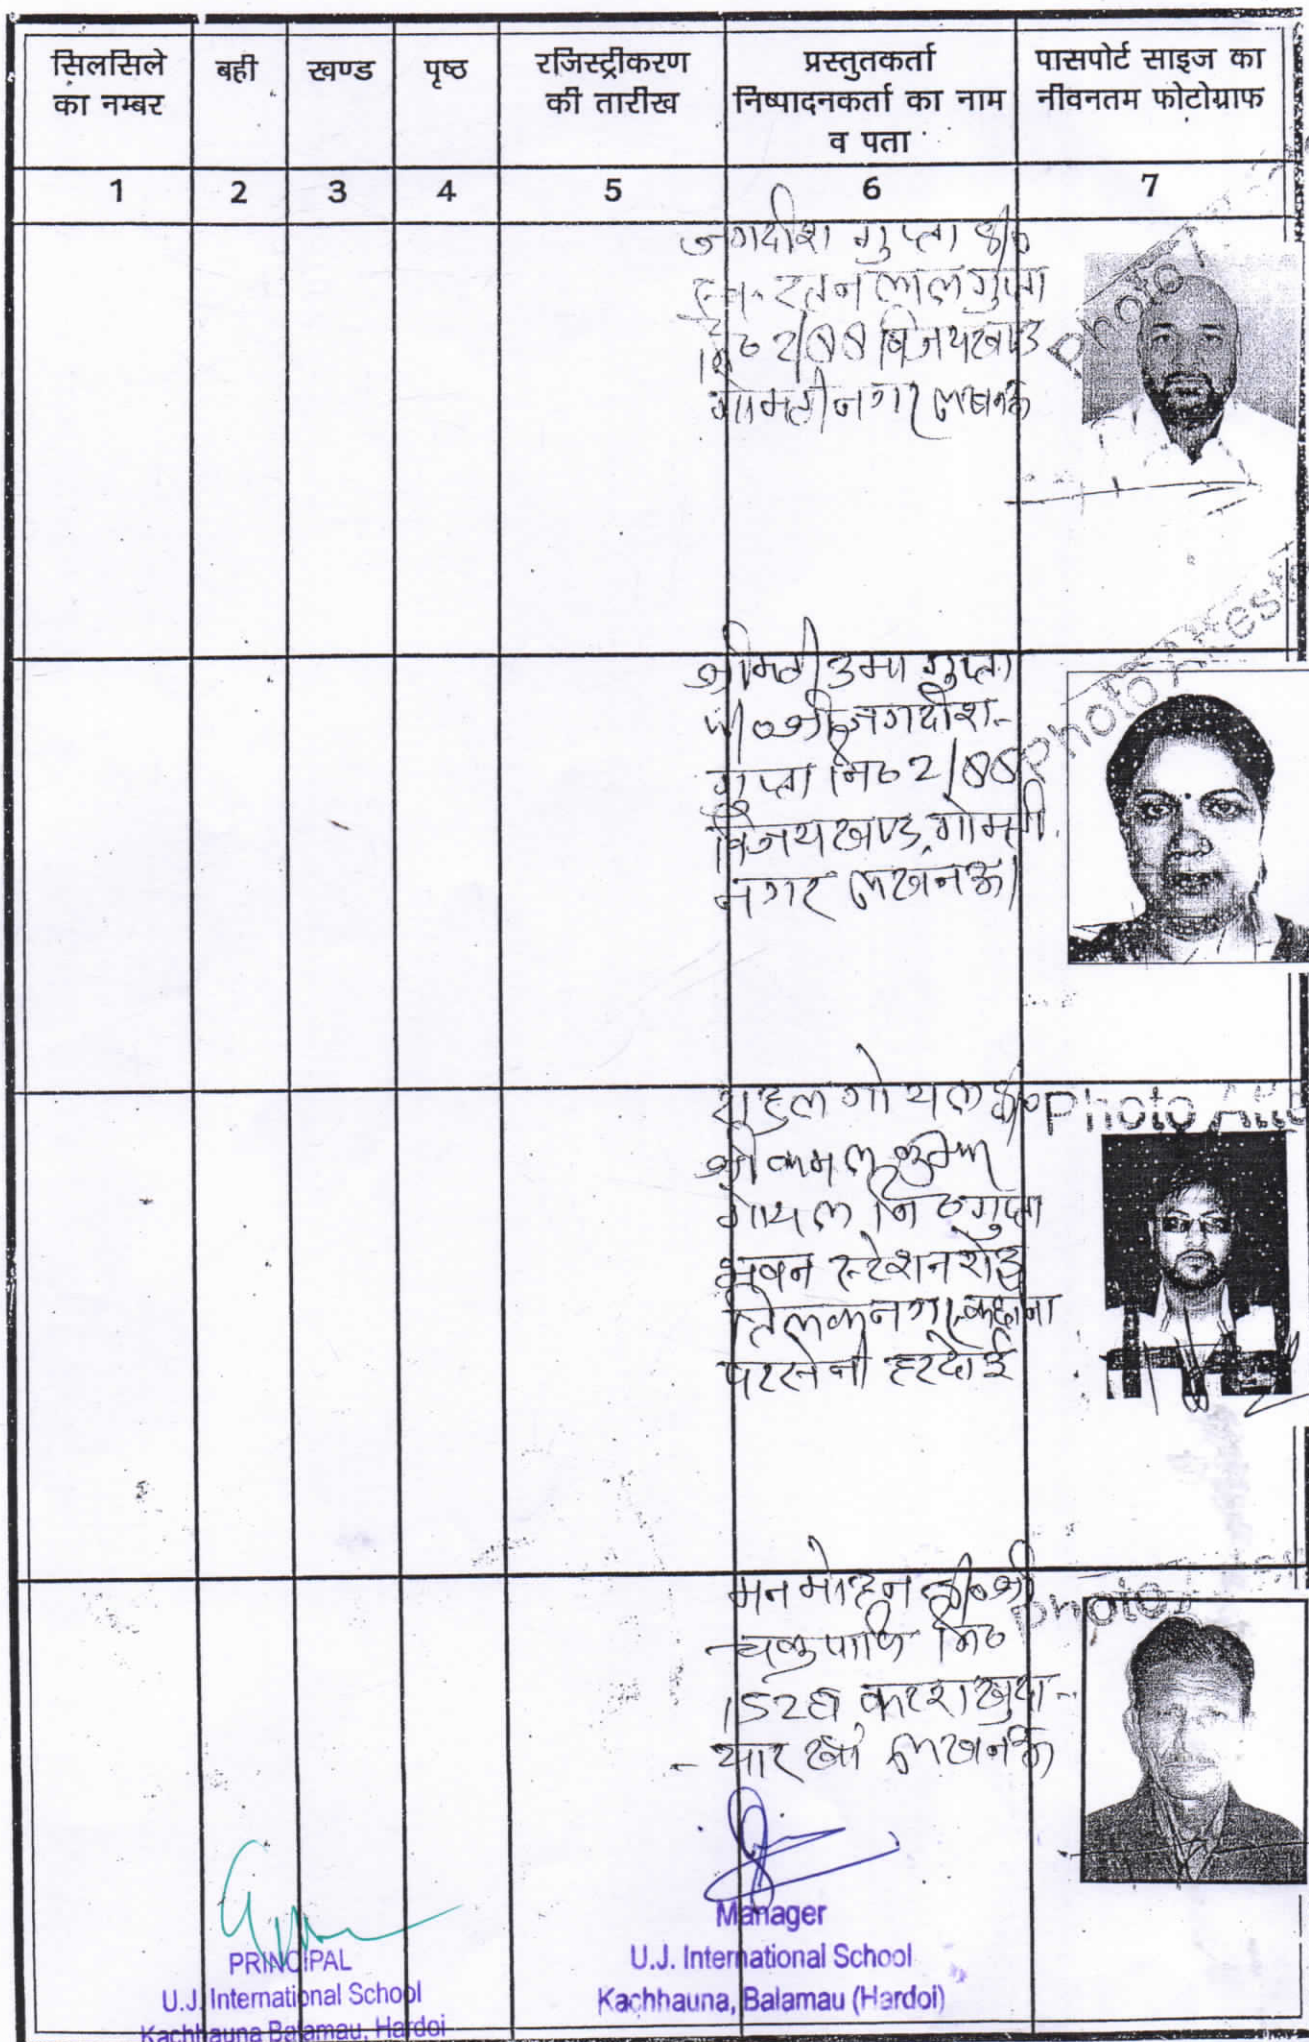 सिलसिले
का नम्बर
बही
खण्ड
पृष्ठ
रजिस्ट्रीकरण
की तारीख
प्रस्तुतकर्ता
निष्पादनकर्ता का नाम
व पता
पासपोर्ट साइज का
नीवनतम फोटोग्राफ
1 2 3 4 5 6 7
जगदीश गुप्ता S/o
स्व. रतन लाल गुप्ता
नि० 2/88 विजयखण्ड
गोमतीनगर लखनऊ
Photo
श्रीमती उमा गुप्ता
W/o श्री जगदीश-
गुप्ता नि० 2/88
विजयखण्ड, गोमती
नगर लखनऊ।
Photo Attes
राहुल गोयल S/o
श्री कमल कुमार
गोयल नि० गुप्ता
भवन स्टेशन रोड
तिलकनगर, कछौना
पतसेनी हरदोई
Photo Atte
मन मोहन S/o श्री
नि०
लखनऊ
Photo
PRINCIPAL
U.J. International School
Kachhauna Balamau, Hardoi
Manager
U.J. International School
Kachhauna, Balamau (Hardoi)